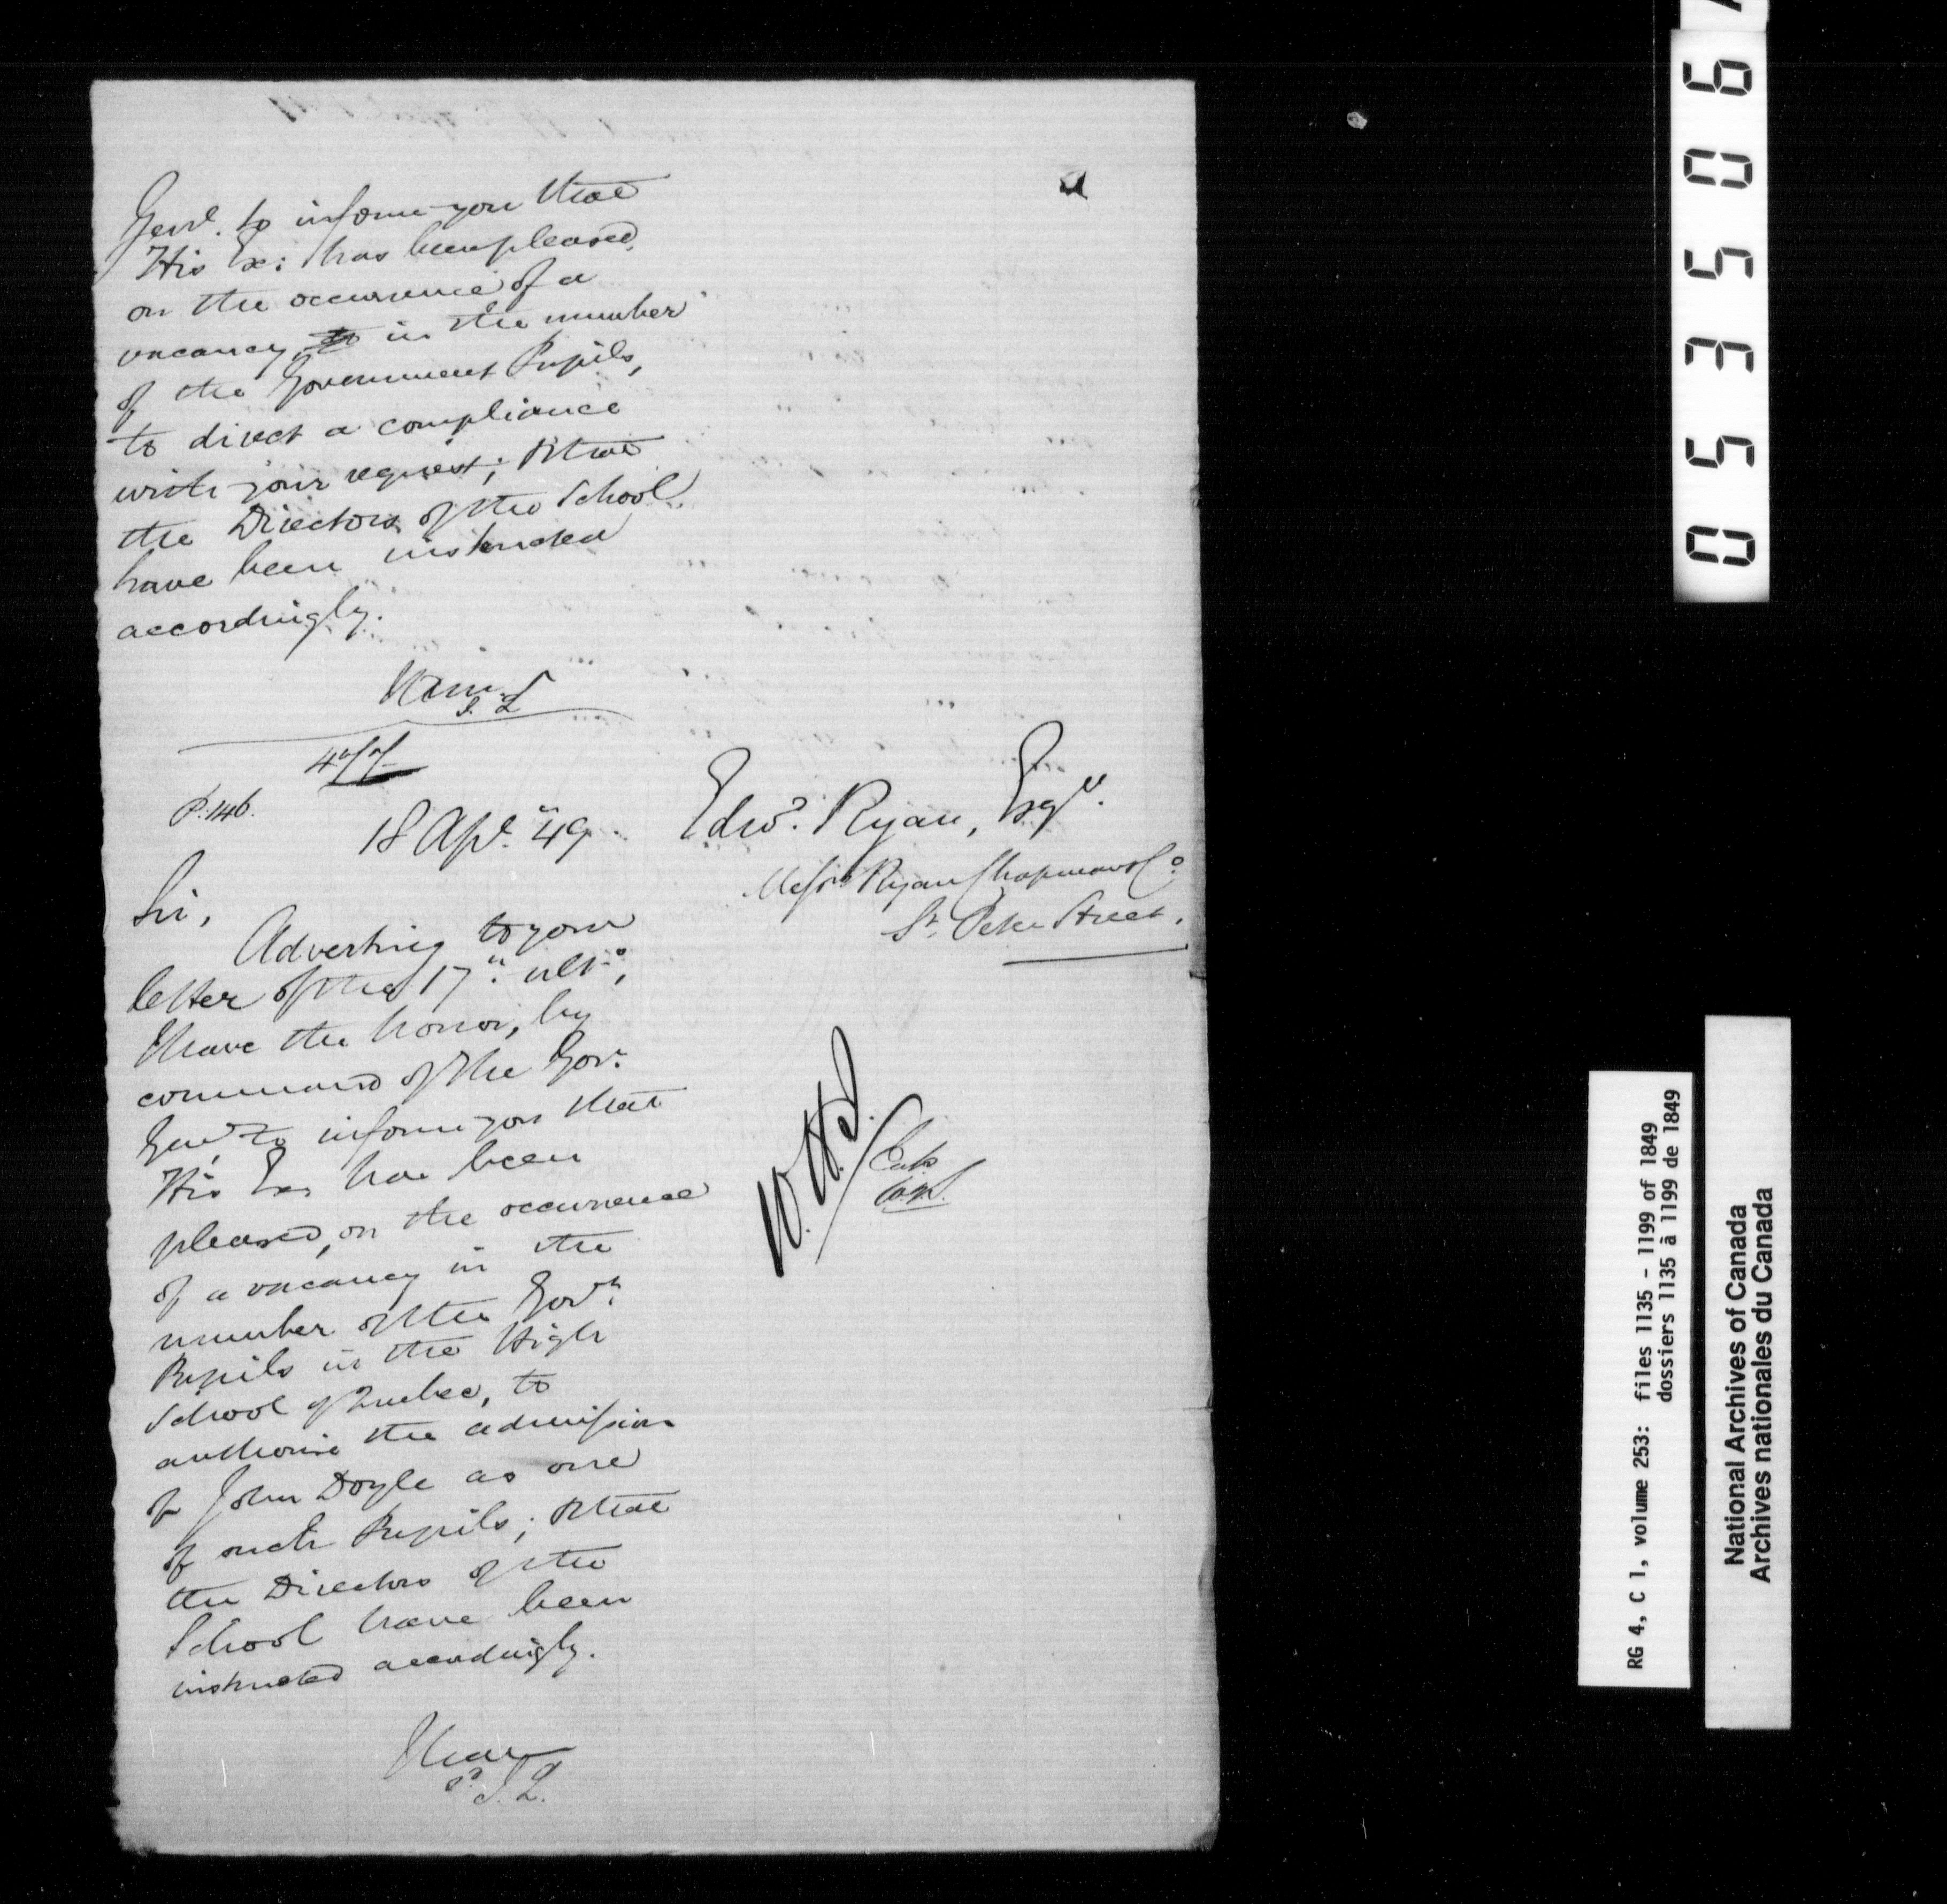 Genl. to inform you that
His Ex: has been pleased,
on the occurrence of a
vacancy, to in the number
of the Government Pupils,
to direct a compliance
with your request; & that
the Directors of the School
have been instructed
accordingly.
P. 146.
18 Apl. "49.
Edwd. Ryan, Esqr.
Messrs Ryan Chapman & Co.
St. Peter Street.
Sir,
Adverting to your
letter of the 17th ulto,
I have the honor, by
command of the Govr.
Genl. to inform you that
His Ex. has been
pleased, on the occurrence
of a vacancy in the
number of the Govt.
Pupils in the High
School of Quebec, to
authorise the admission
of John Doyle as one
of such Pupils; & that
the Directors of the
School have been
instructed accordingly.
I have
053506
RG 4, C 1, volume 253: files 1135 - 1199 of 1849
dossiers 1135 à 1199 de 1849
National Archives of Canada
Archives nationales du Canada